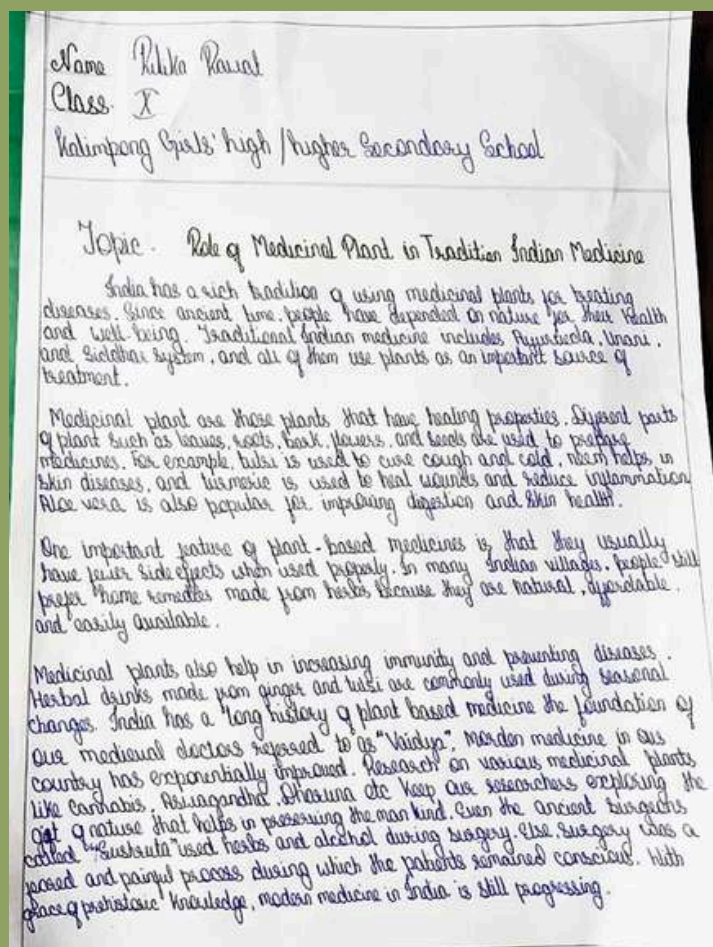 Name Ritika Rawat
Class. X
Kalimpong Girls' high / higher Secondary School
Topic. Role of Medicinal Plant in Tradition Indian Medicine
India has a rich tradition of using medicinal plants for treating
diseases. Since ancient time, people have depended on nature for their health
and well-being. Traditional Indian medicine includes Ayurveda, Unani,
and Siddhar system, and all of them use plants as an important source of
treatment.
Medicinal plant are those plants that have healing properties. Different parts
of plant such as leaves, roots, bark, flowers, and seeds are used to prepare
medicines. For example, tulsi is used to cure cough and cold, neem helps in
skin diseases, and turmeric is used to heal wounds and reduce inflammation
Aloe vera is also popular for improving digestion and skin health.
One important feature of plant-based medicines is that they usually
have fewer side effects when used properly. In many Indian villages, people still
prefer home remedies made from herbs because they are natural, affordable,
and easily available.
Medicinal plants also help in increasing immunity and preventing diseases.
Herbal drinks made from ginger and tulsi are commonly used during seasonal
changes. India has a long history of plant based medicine the foundation of
our medieval doctors referred to as "Vaidya". Morden medicine in our
country has exponentially improved. Research on various medicinal plants
like cannabis, Aswagandha, etc keep our researchers exploring the
gift of nature that helps in preserving the man kind. Even the ancient surgeons
called "Sushruta" used herbs and alcohol during surgery. Else surgery was a
forced and painful process during which the patients remained conscious. With
grace of prehistoric knowledge, modern medicine in India is still progressing.